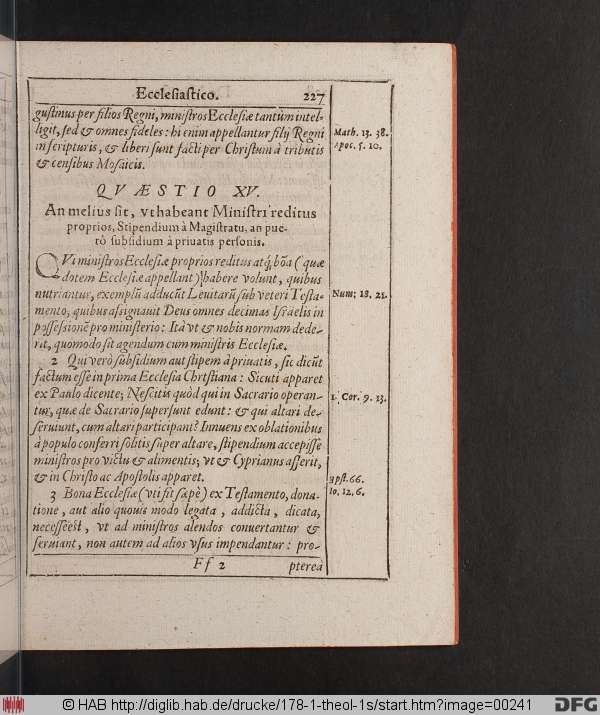 Ecclesiastico. 227
gustinus per filios Regni, ministros Ecclesiæ tantùm intel-
ligit, sed & omnes fideles: hi enim appellantur filij Regni
in scripturis, & liberi sunt facti per Christum à tributis
& censibus Mosaicis.
Math. 13. 38.
Apoc. 5. 10.
QVÆSTIO XV.
An melius sit, vt habeant Ministri reditus
proprios, Stipendium à Magistratu, an pue-
rò subsidium à priuatis personis.
QVi ministros Ecclesiæ proprios reditus atq́, bōa (quæ
dotem Ecclesiæ appellant) habere volunt, quibus
nutriantur, exemplū adducūt Leuitarū sub veteri Testa-
mento, quibus assignauit Deus omnes decimas Israelis in
possessionē pro ministerio: Itá vt & nobis normam dede-
rit, quomodo sit agendum cum ministris Ecclesiæ.
Num; 18. 21.
2 Qui verò subsidium aut stipem à priuatis, sic dicūt
factum esse in prima Ecclesia Christiana: Sicuti apparet
ex Paulo dicente; Nescitis quòd qui in Sacrario operan-
tur, quæ de Sacrario supersunt edunt: & qui altari de-
seruiunt, cum altari participant? Innuens ex oblationibus
à populo conferri solitis super altare, stipendium accepisse
ministros pro victu & alimentis; vt & Cyprianus asserit,
& in Christo ac Apostolis apparet.
1. Cor. 9. 13.
Epst. 66.
Io. 12. 6.
3 Bona Ecclesiæ (vti fit sæpè) ex Testamento, dona-
tione, aut alio quouis modo legata, addicta, dicata,
necesse est, vt ad ministros alendos conuertantur &
seruiant, non autem ad alios vsus impendantur: pro-
Ff 2 pterea
© HAB http://diglib.hab.de/drucke/178-1-theol-1s/start.htm?image=00241
DFG